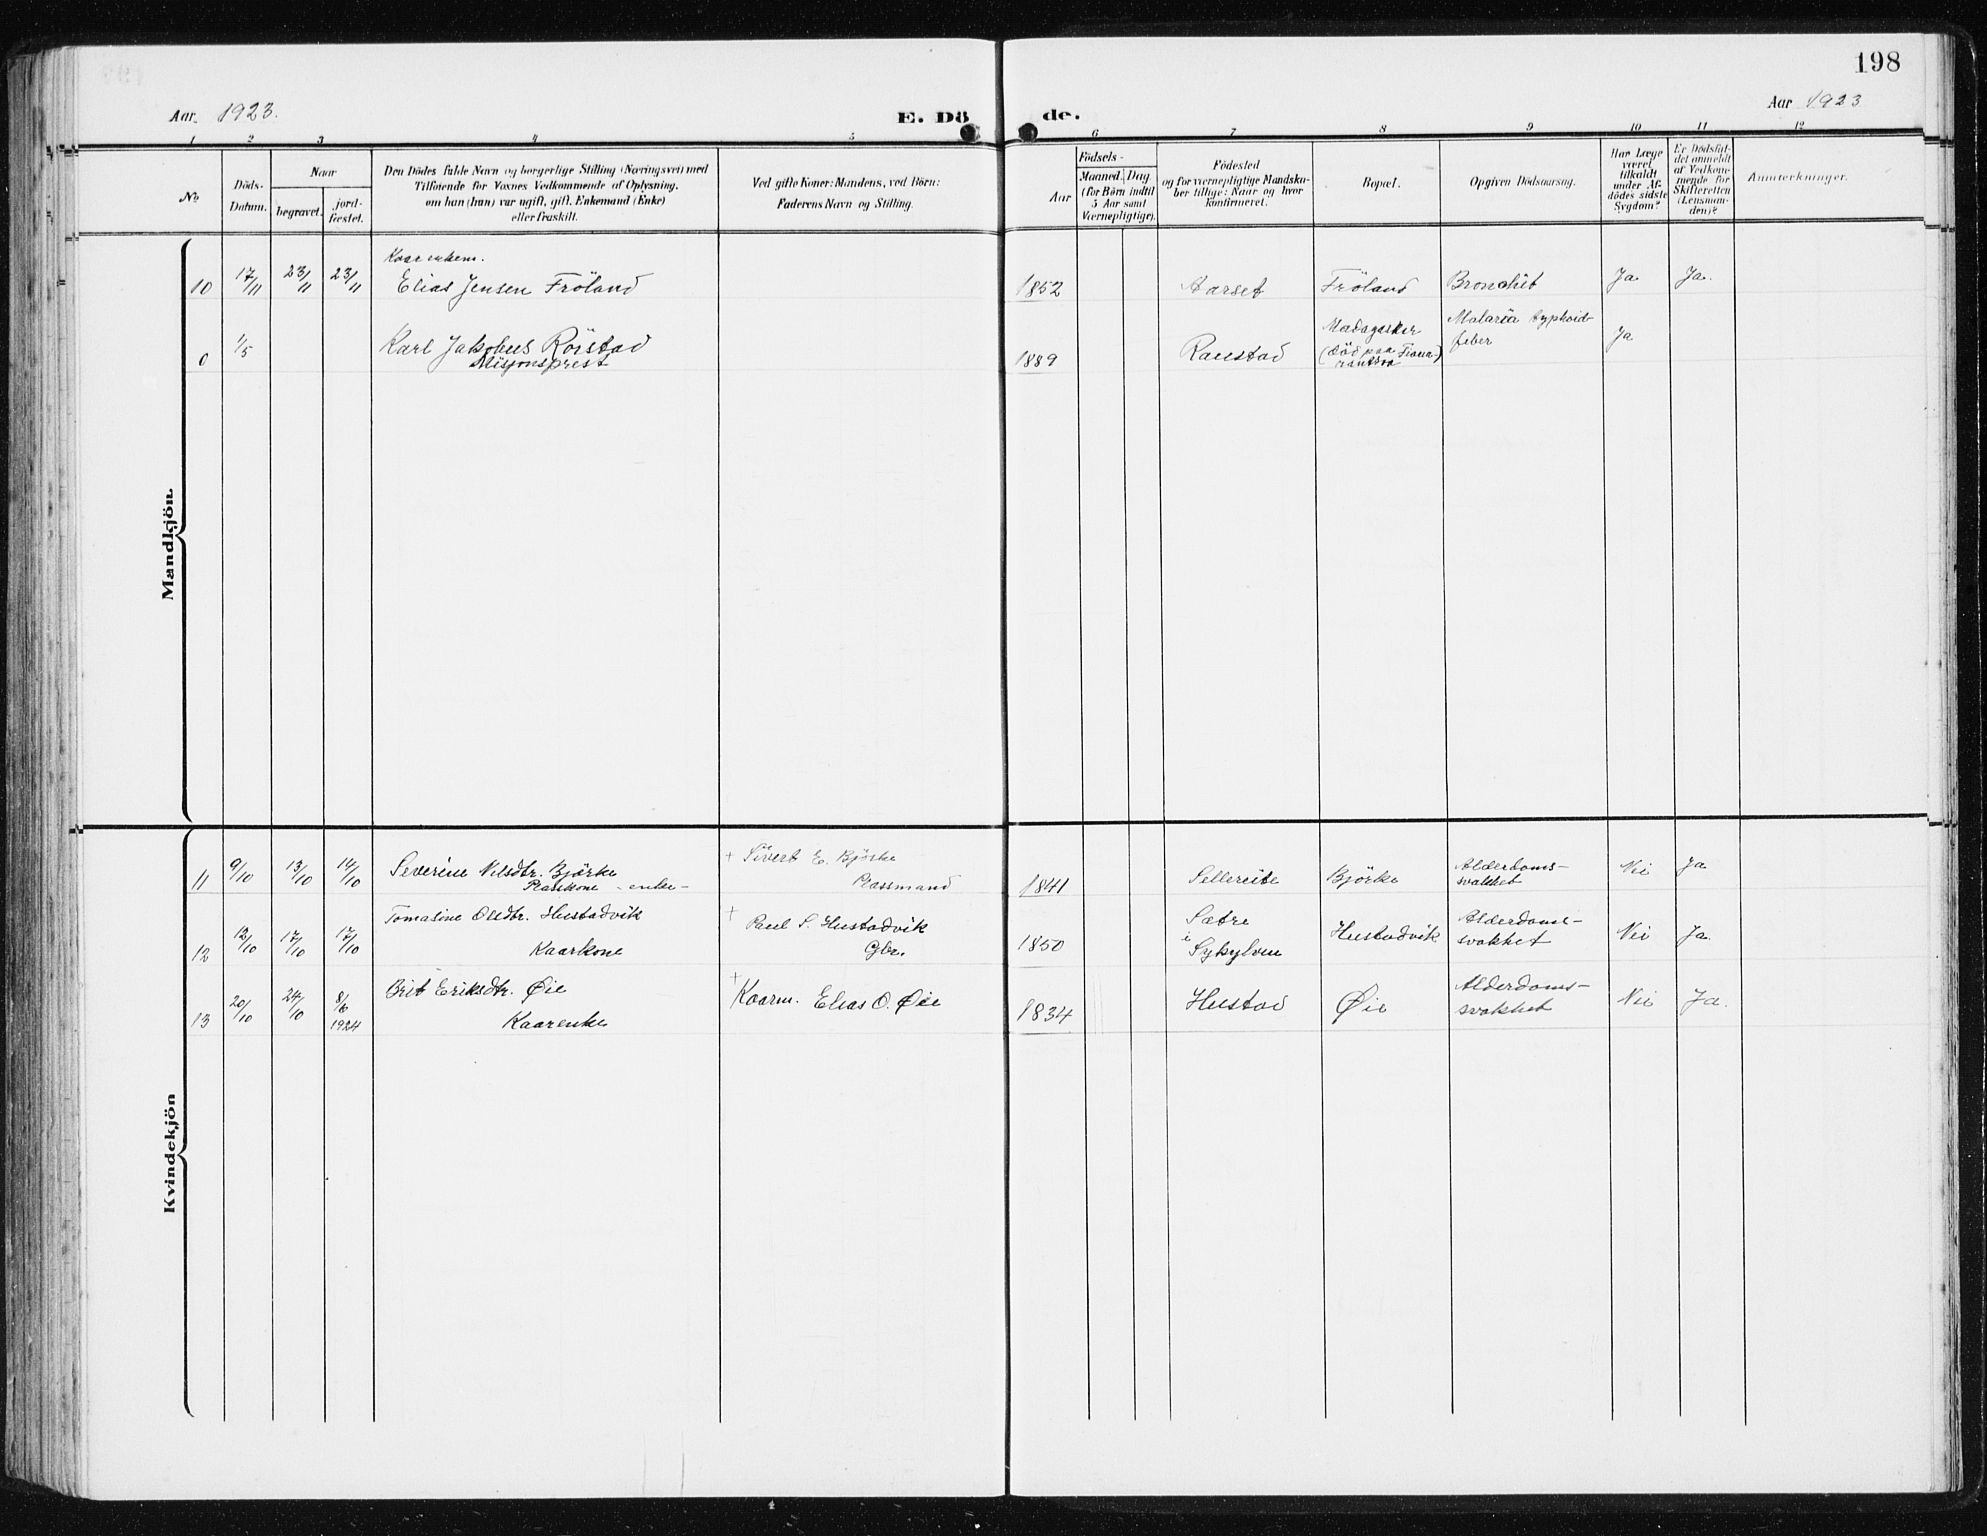 198
Aar 1923.
E. Dö
de.
Aar 1923
1 2 3 4 5 6 7 8 9 10 11 12
No.
Döds-
Datum.
Naar
begravet.
jord-
fæstet.
Den Dödes fulde Navn og borgerlige Stilling (Næringsvei) med
Tilföiende for Voxnes Vedkommende af Oplysning,
om han (hun) var ugift, gift, Enkemand (Enke)
eller fraskilt.
Ved gifte Koner: Mandens, ved Börn:
Faderens Navn og Stilling.
Födsels-
Aar
Maaned. Dag
(for Börn indtil
5 Aar samt
Værnepligtige).
Födested
og for værnepligtige Mandska-
ber tillige: Naar og hvor
konfirmeret.
Bopæl.
Opgiven Dödsaarsag.
Har Læge
været
tilkaldt
under Af-
dödes sidste
Sygdom?
Er Dödsfal-
det anmeldt
af Vedkom-
mende for
Skifteretten
(Lensman-
den)?
Anmærkninger.
Mandkjön.
Kaarenkem.
10 17/11 23/11 23/11 Elias Jensen Fröland 1852 Aarset Fröland Bronchit Ja Ja.
0 1/5 Karl Jakobus Röistad
Misjonsprest
1889 Raustad
Madagaskar
(död paa Fiana-
rantsoa)
Malaria typhoid-
feber
Ja
Kvindekjön
11 9/10 13/10 14/10 Severine Nilsdtr. Björke
Plasskone - enke -
+ Sivert E. Björke
Plassmand
1841 Sellereite Björke
Alderdoms-
svakhet
Nei Ja
12 12/10 17/10 17/10 Tomasine Olsdtr. Hustadvik
Kaarkone
+ Paul S. Hustadvik
Gbr.
1850 Sætre
i Sykylven
Hustadvik
Alderdoms-
svakhet
Nei Ja.
13 20/10 24/10 8/6 1924 Brit Eriksdtr. Øie
Kaarenke
+ Kaarm. Elias O. Øie
1834 Hustad Øie
Alderdoms-
svakhet
Nei Ja.